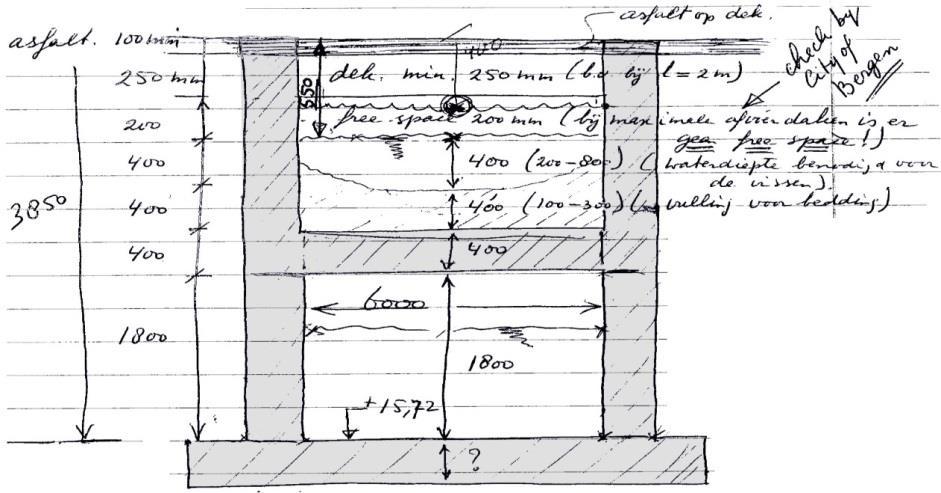 asfalt op dek.
asfalt. 100 mm
400
check by
City of
Bergen
250 mm
550
dek. min. 250 mm (b.v. bij l = 2 m)
200
free space 200 mm (bij maximale afvoer dalen is er
geen free space!)
400
400 (200-800) (waterdiepte benodigd voor
de vissen)
3850
400
400 (100-300) (vulling voor bedding)
400
400
6000
1800
1800
+15,72
?